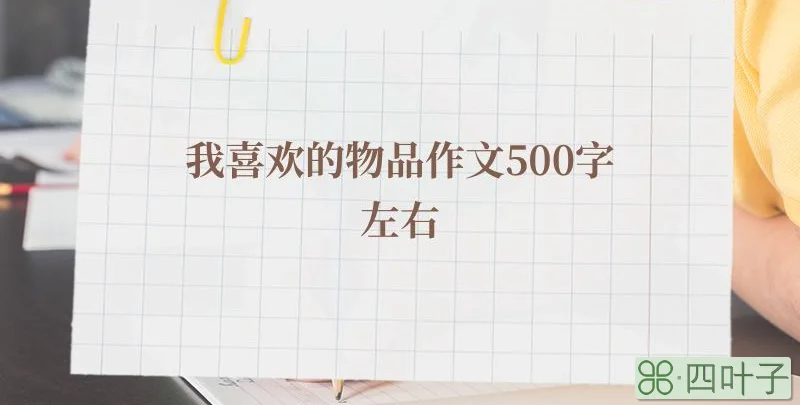 我喜欢的物品作文500字
左右
四叶子